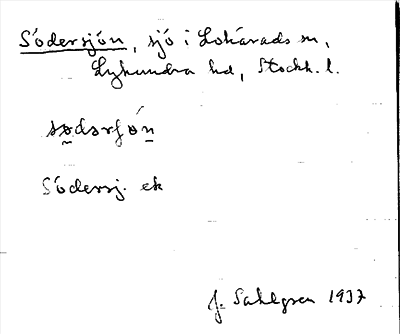 Södersjön, sjö i Lohärads sn,
Lyhundra hd, Stockh. l.
Södersj. ek
J. Sahlgren 1937